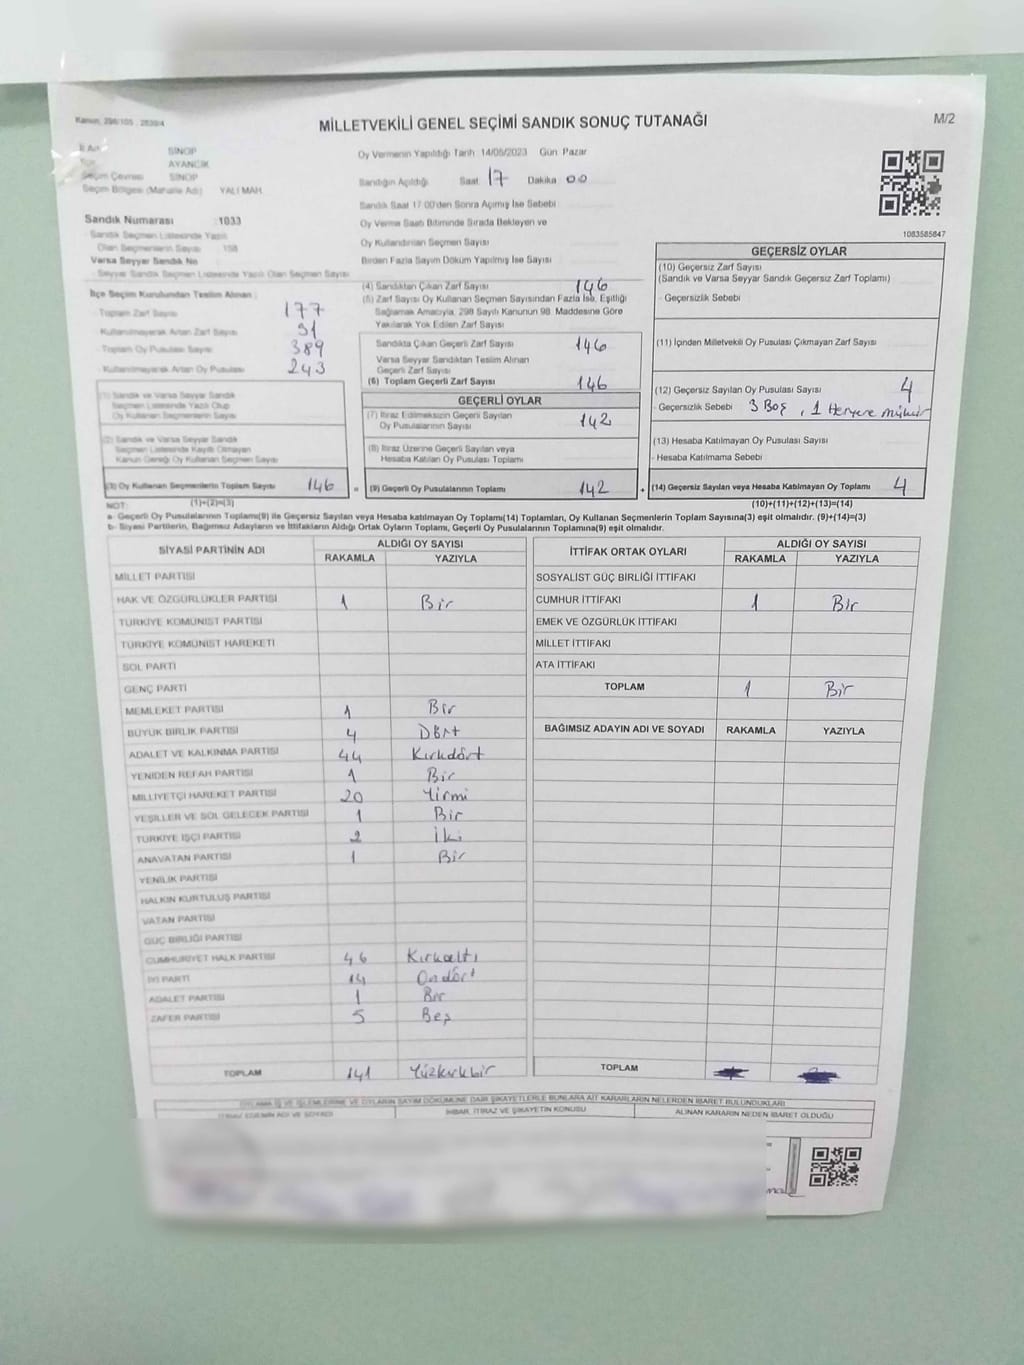 Kanun: 298/105 , 2839/4
MİLLETVEKİLİ GENEL SEÇİMİ SANDIK SONUÇ TUTANAĞI
M/2
İl Adı SİNOP
AYANCIK
Seçim Çevresi SİNOP
Seçim Bölgesi (Mahalle Adı) YALI MAH.
Sandık Numarası : 1033
Sandık Seçmen Listesinde Yazılı
Olan Seçmenlerin Sayısı 158
Varsa Seyyar Sandık No
Seyyar Sandık Seçmen Listesinde Yazılı Olan Seçmen Sayısı
İlçe Seçim Kurulundan Teslim Alınan :
Toplam Zarf Sayısı 177
Kullanılmayarak Artan Zarf Sayısı 31
Toplam Oy Pusulası Sayısı 389
Kullanılmayarak Artan Oy Pusulası 243
(1) Sandık ve Varsa Seyyar Sandık
Seçmen Listesinde Yazılı Olup
Oy Kullanan Seçmenlerin Sayısı
(2) Sandık ve Varsa Seyyar Sandık
Seçmen Listesinde Kayıtlı Olmayan
Kanun Gereği Oy Kullanan Seçmen Sayısı
(3) Oy Kullanan Seçmenlerin Toplam Sayısı 146
(1)+(2)=(3)
Oy Vermenin Yapıldığı Tarih 14/05/2023 Gün Pazar
Sandığın Açıldığı Saat 17 Dakika 00
Sandık Saat 17:00'den Sonra Açılmış İse Sebebi
Oy Verme Saati Bitiminde Sırada Bekleyen ve
Oy Kullandırılan Seçmen Sayısı
Birden Fazla Sayım Döküm Yapılmış İse Sayısı
(4) Sandıktan Çıkan Zarf Sayısı 146
(5) Zarf Sayısı Oy Kullanan Seçmen Sayısından Fazla İse, Eşitliği
Sağlamak Amacıyla, 298 Sayılı Kanunun 98. Maddesine Göre
Yakılarak Yok Edilen Zarf Sayısı
Sandıkta Çıkan Geçerli Zarf Sayısı 146
Varsa Seyyar Sandıktan Teslim Alınan
Geçerli Zarf Sayısı
(6) Toplam Geçerli Zarf Sayısı 146
GEÇERLİ OYLAR
(7) İtiraz Edilmeksizin Geçerli Sayılan
Oy Pusulalarının Sayısı 142
(8) İtiraz Üzerine Geçerli Sayılan veya
Hesaba Katılan Oy Pusulası Toplamı
= (9) Geçerli Oy Pusulalarının Toplamı 142
1083585847
GEÇERSİZ OYLAR
(10) Geçersiz Zarf Sayısı
(Sandık ve Varsa Seyyar Sandık Geçersiz Zarf Toplamı)
Geçersizlik Sebebi
(11) İçinden Milletvekili Oy Pusulası Çıkmayan Zarf Sayısı
(12) Geçersiz Sayılan Oy Pusulası Sayısı 4
Geçersizlik Sebebi 3 Boş , 1 Heryere mühür
(13) Hesaba Katılmayan Oy Pusulası Sayısı
Hesaba Katılmama Sebebi
+ (14) Geçersiz Sayılan veya Hesaba Katılmayan Oy Toplamı 4
(10)+(11)+(12)+(13)=(14)
NOT:
a- Geçerli Oy Pusulalarının Toplamı(9) ile Geçersiz Sayılan veya Hesaba katılmayan Oy Toplamı(14) Toplamları, Oy Kullanan Seçmenlerin Toplam Sayısına(3) eşit olmalıdır. (9)+(14)=(3)
b- Siyasi Partilerin, Bağımsız Adayların ve İttifakların Aldığı Ortak Oyların Toplamı, Geçerli Oy Pusulalarının Toplamına(9) eşit olmalıdır.
SİYASİ PARTİNİN ADI ALDIĞI OY SAYISI
RAKAMLA YAZIYLA
MİLLET PARTİSİ
HAK VE ÖZGÜRLÜKLER PARTİSİ 1 Bir
TÜRKİYE KOMÜNİST PARTİSİ
TÜRKİYE KOMÜNİST HAREKETİ
SOL PARTİ
GENÇ PARTİ
MEMLEKET PARTİSİ 1 Bir
BÜYÜK BİRLİK PARTİSİ 4 Dört
ADALET VE KALKINMA PARTİSİ 44 Kırkdört
YENİDEN REFAH PARTİSİ 1 Bir
MİLLİYETÇİ HAREKET PARTİSİ 20 Yirmi
YEŞİLLER VE SOL GELECEK PARTİSİ 1 Bir
TÜRKİYE İŞÇİ PARTİSİ 2 İki
ANAVATAN PARTİSİ 1 Bir
YENİLİK PARTİSİ
HALKIN KURTULUŞ PARTİSİ
VATAN PARTİSİ
GÜÇ BİRLİĞİ PARTİSİ
CUMHURİYET HALK PARTİSİ 46 Kırkaltı
İYİ PARTİ 14 Ondört
ADALET PARTİSİ 1 Bir
ZAFER PARTİSİ 5 Beş
TOPLAM 141 Yüzkırkbir
İTTİFAK ORTAK OYLARI ALDIĞI OY SAYISI
RAKAMLA YAZIYLA
SOSYALİST GÜÇ BİRLİĞİ İTTİFAKI
CUMHUR İTTİFAKI 1 Bir
EMEK VE ÖZGÜRLÜK İTTİFAKI
MİLLET İTTİFAKI
ATA İTTİFAKI
TOPLAM 1 Bir
BAĞIMSIZ ADAYIN ADI VE SOYADI RAKAMLA YAZIYLA
TOPLAM
OYLAMA İŞ VE İŞLEMLERİNE VE OYLARIN SAYIM DÖKÜMÜNE DAİR ŞİKAYETLERLE BUNLARA AİT KARARLARIN NELERDEN İBARET BULUNDUKLARI
İTİRAZ EDENİN ADI VE SOYADI İHBAR, İTİRAZ VE ŞİKAYETİN KONUSU ALINAN KARARIN NEDEN İBARET OLDUĞU